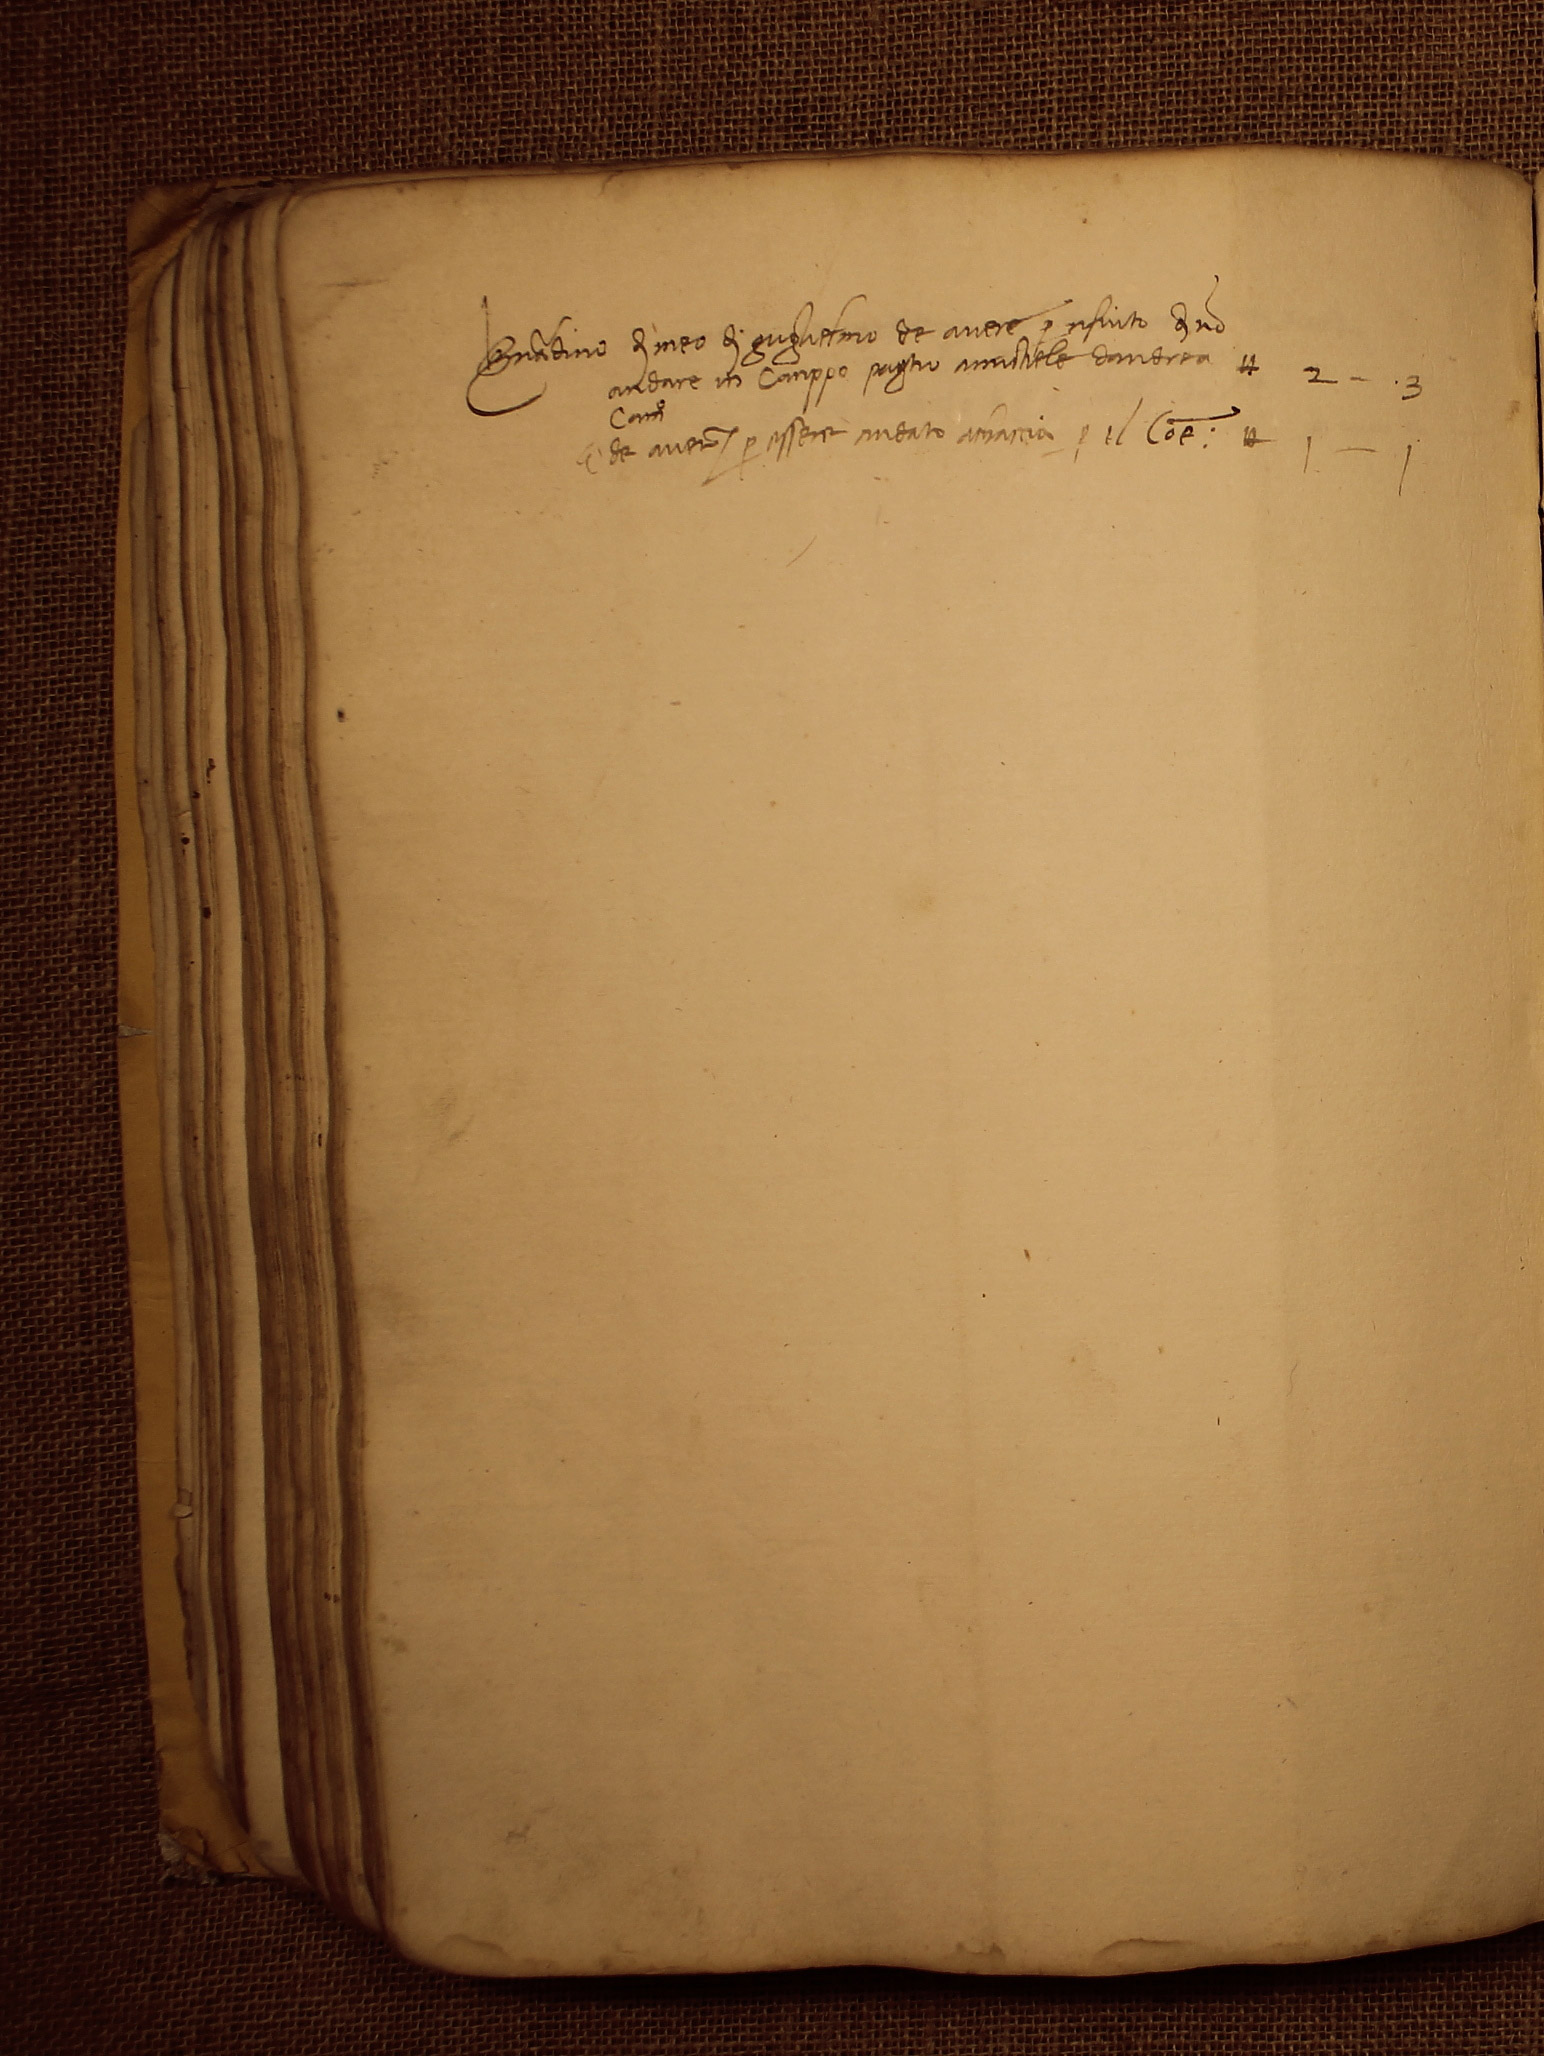 Bnādino di meo di guglielmo de avere p rifiuto di nō
andare in Camppo pagho michele dandrea # 2 – 3
Camo
E de avere p essere andato p il Coē: # 1 – 1